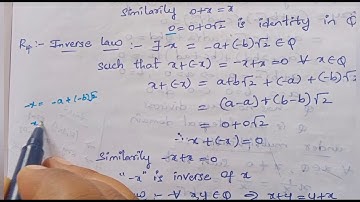 Similarily 0+x=x
0=0+0√2 is identity in Q
R₄:- Inverse law :- ∃ -x = -a+(-b)√2 ∈ Q
such that x+(-x) = -x+x=0 ∀ x∈Q
x+(-x) = a+b√2 + (-a) + (-b)√2
-x = -a+(-b)√2
= (a-a) + (b-b)√2
-x
= 0+0√2
∴ x+(-x)=0
Similarily -x+x=0
"-x" is inverse of x
law :- ∀ x,y ∈ Q ⇒ x+y = y+x